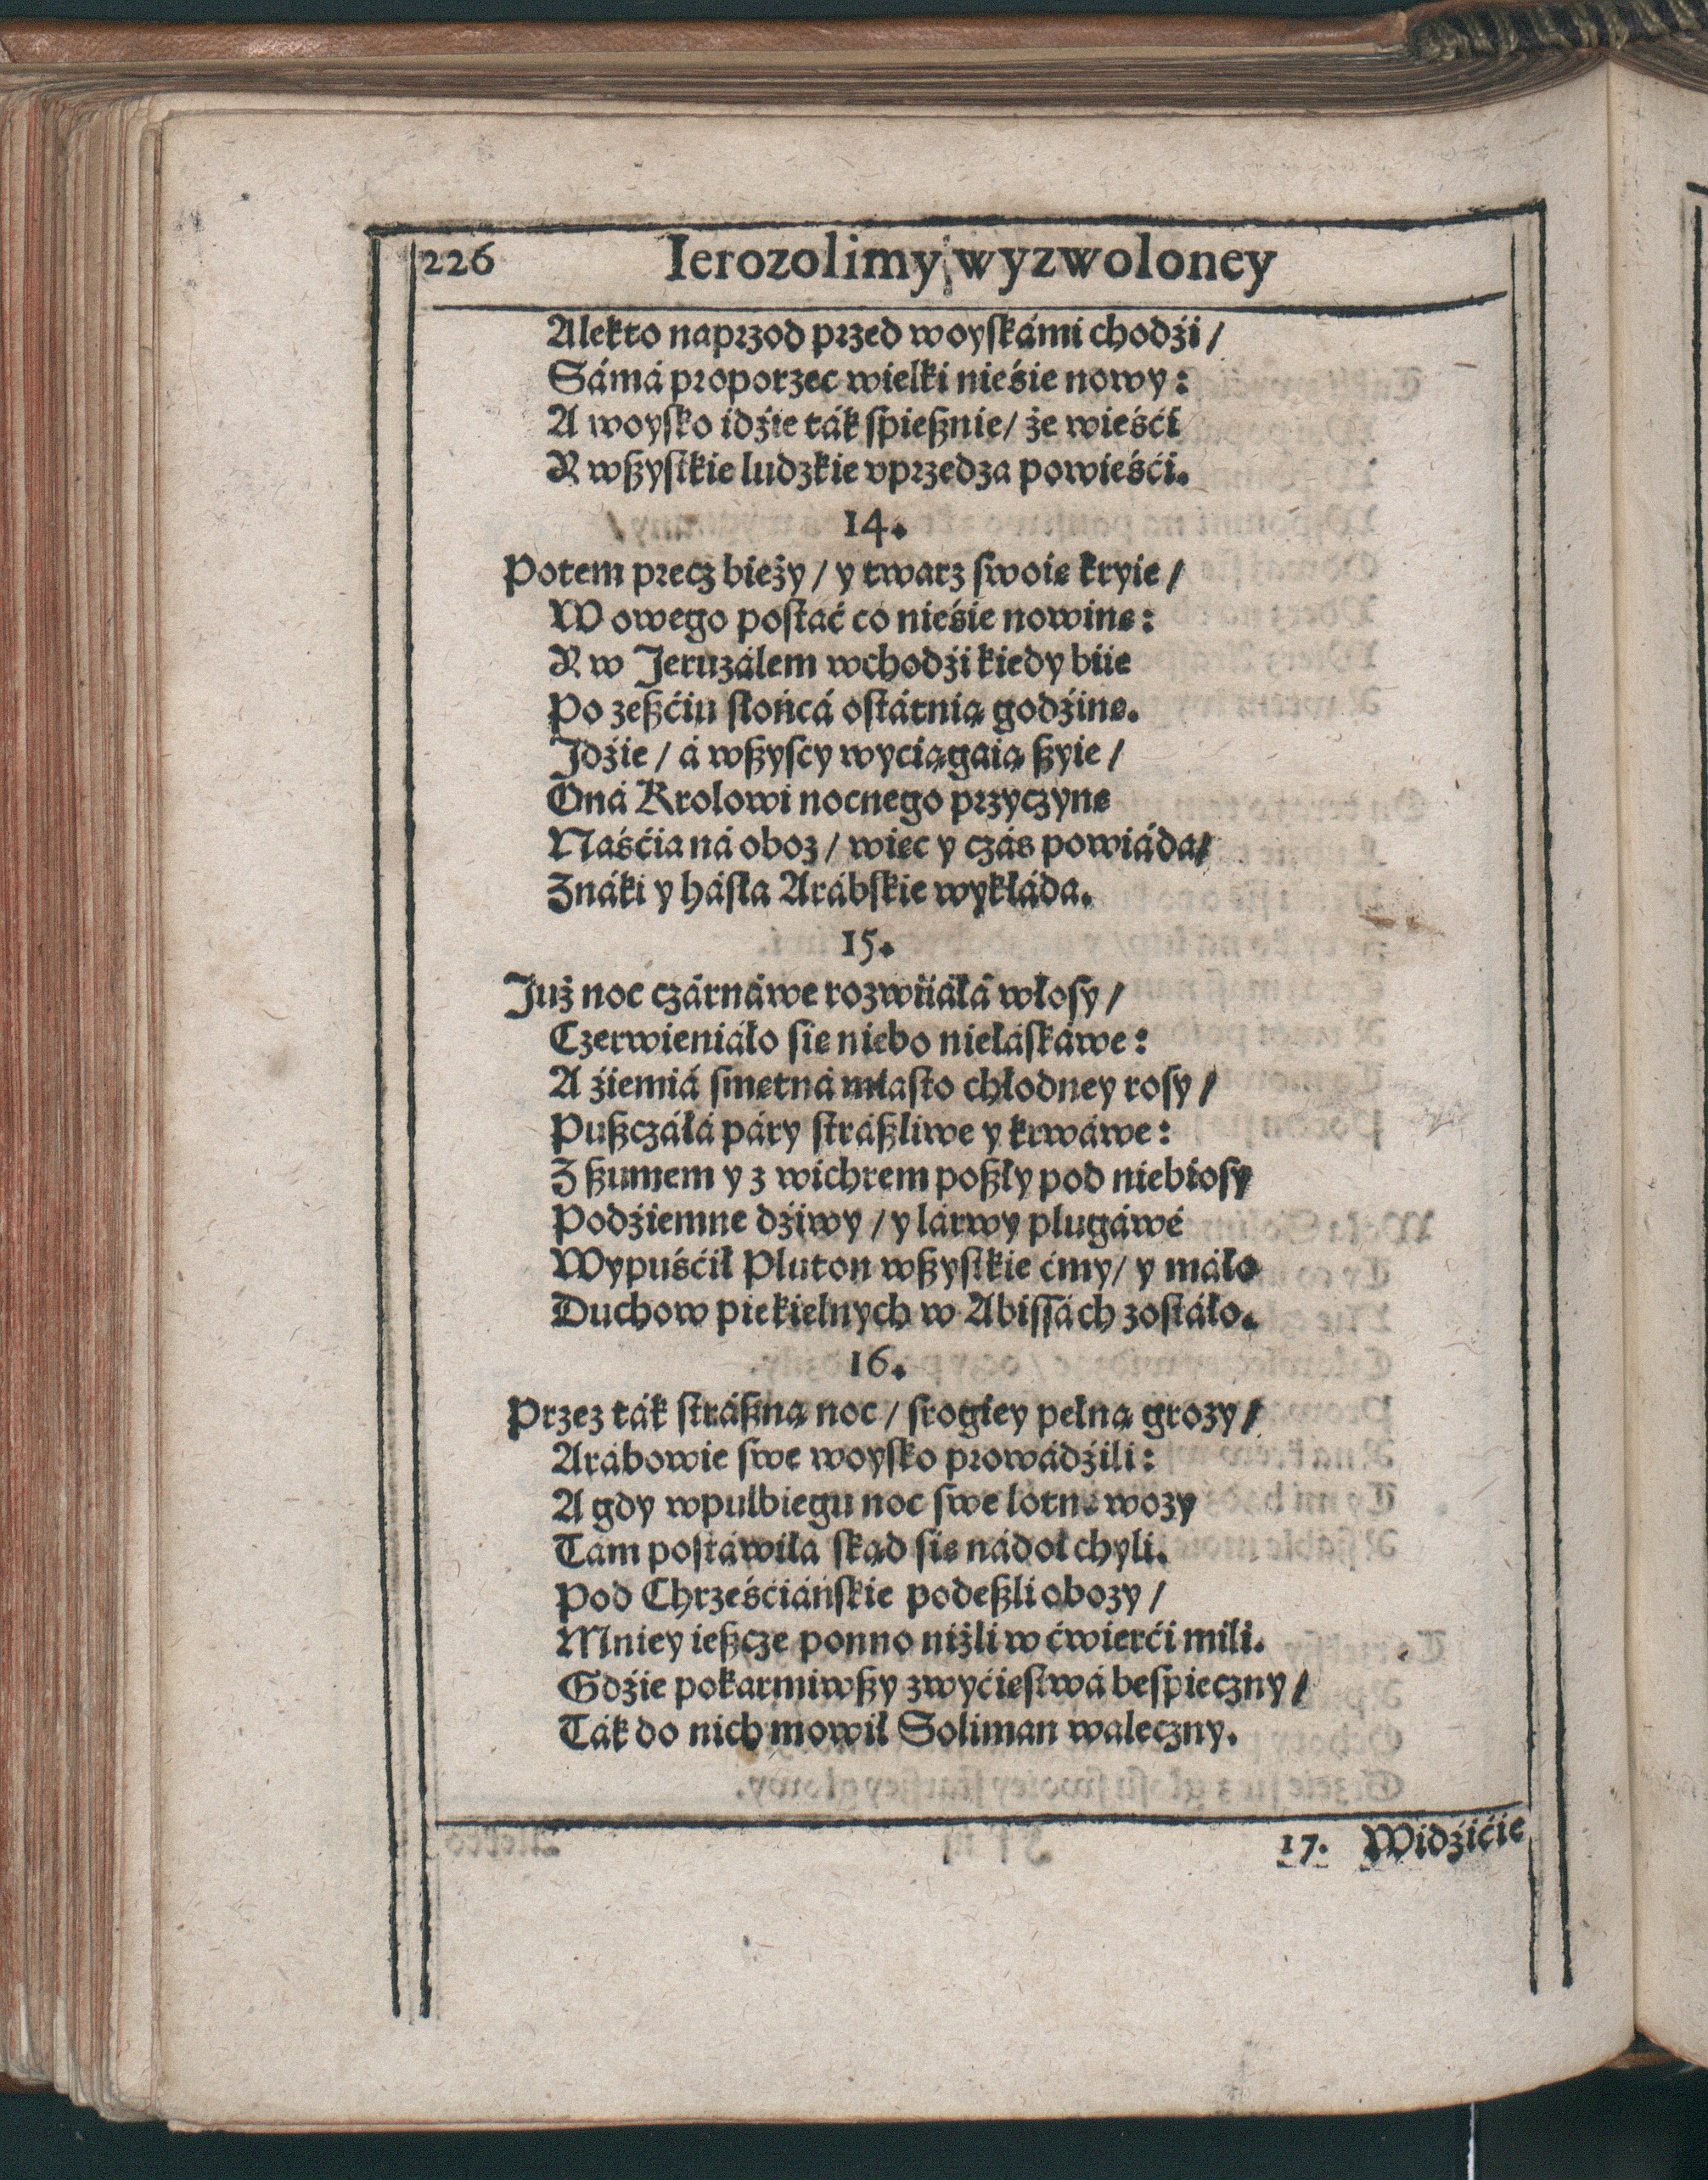 226 Ierozolimy wyzwoloney
Alekto naprzod przed woyſkámi chodźi /
Sámá proporzec wielki nieśie nowy:
A woyſko idźie ták ſpieſznie/ że wieśći
Y wſzyſtkie ludzkie vprzedza powieśći.
14.
Potem precz bieży / y twarz ſwoię kryie /
W owego poſtać co nieśie nowinę:
Y w Jeruzálem wchodźi kiedy biie
Po zeſzćiu ſłońcá oſtátnią godźinę.
Jdźie / á wſzyſcy wyciągáią ſzyie /
Oná Krolowi nocnego przyczynę
Naśćia ná oboz / więc y czás powiáda/
Znáki y háſłá Arábſkie wykłáda.
15.
Już noc czárnáwe rozwiiáłá włoſy /
Czerwieniáło ſię niebo niełáſkáwe:
A źiemiá ſmętná miáſto chłodney roſy /
Puſzczáłá páry ſtráſzliwe y krwáwe:
Z ſzumem y z wichrem poſzły pod niebioſy
Podźiemne dźiwy / y lárwy plugáwé
Wypuśćił Pluton wſzyſtkie ćmy/ y máło
Duchow piekielnych w Abiſſách zoſtáło.
16.
Przez ták ſtráſzną noc / ſrogiey pełną grozy /
Arábowie ſwe woyſko prowádźili:
A gdy wpułbiegu noc ſwe lotne wozy
Tám poſtáwiłá ſkąd ſię nádoł chyli.
Pod Chrześćiáńſkie podeſzli obozy /
Mniey ieſzcze ponno niżli w ćwierći mili.
Gdźie pokarmiwſzy zwyćięſtwá beſpieczny /
Ták do nich mowił Soliman waleczny.
17. Widźićie